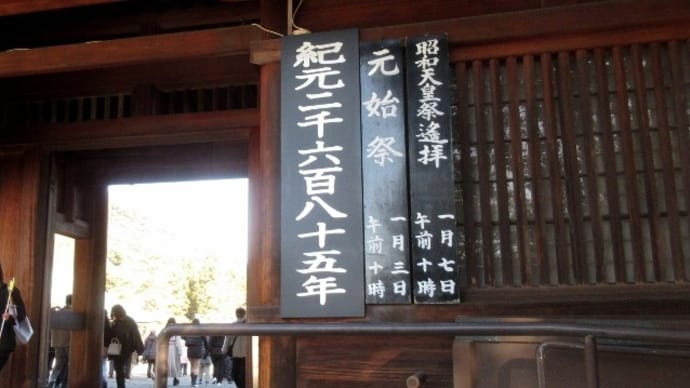 昭和天皇祭遙拝
一月七日
午前十時
元始祭
一月三日
午前十時
紀元二千六百八十五年